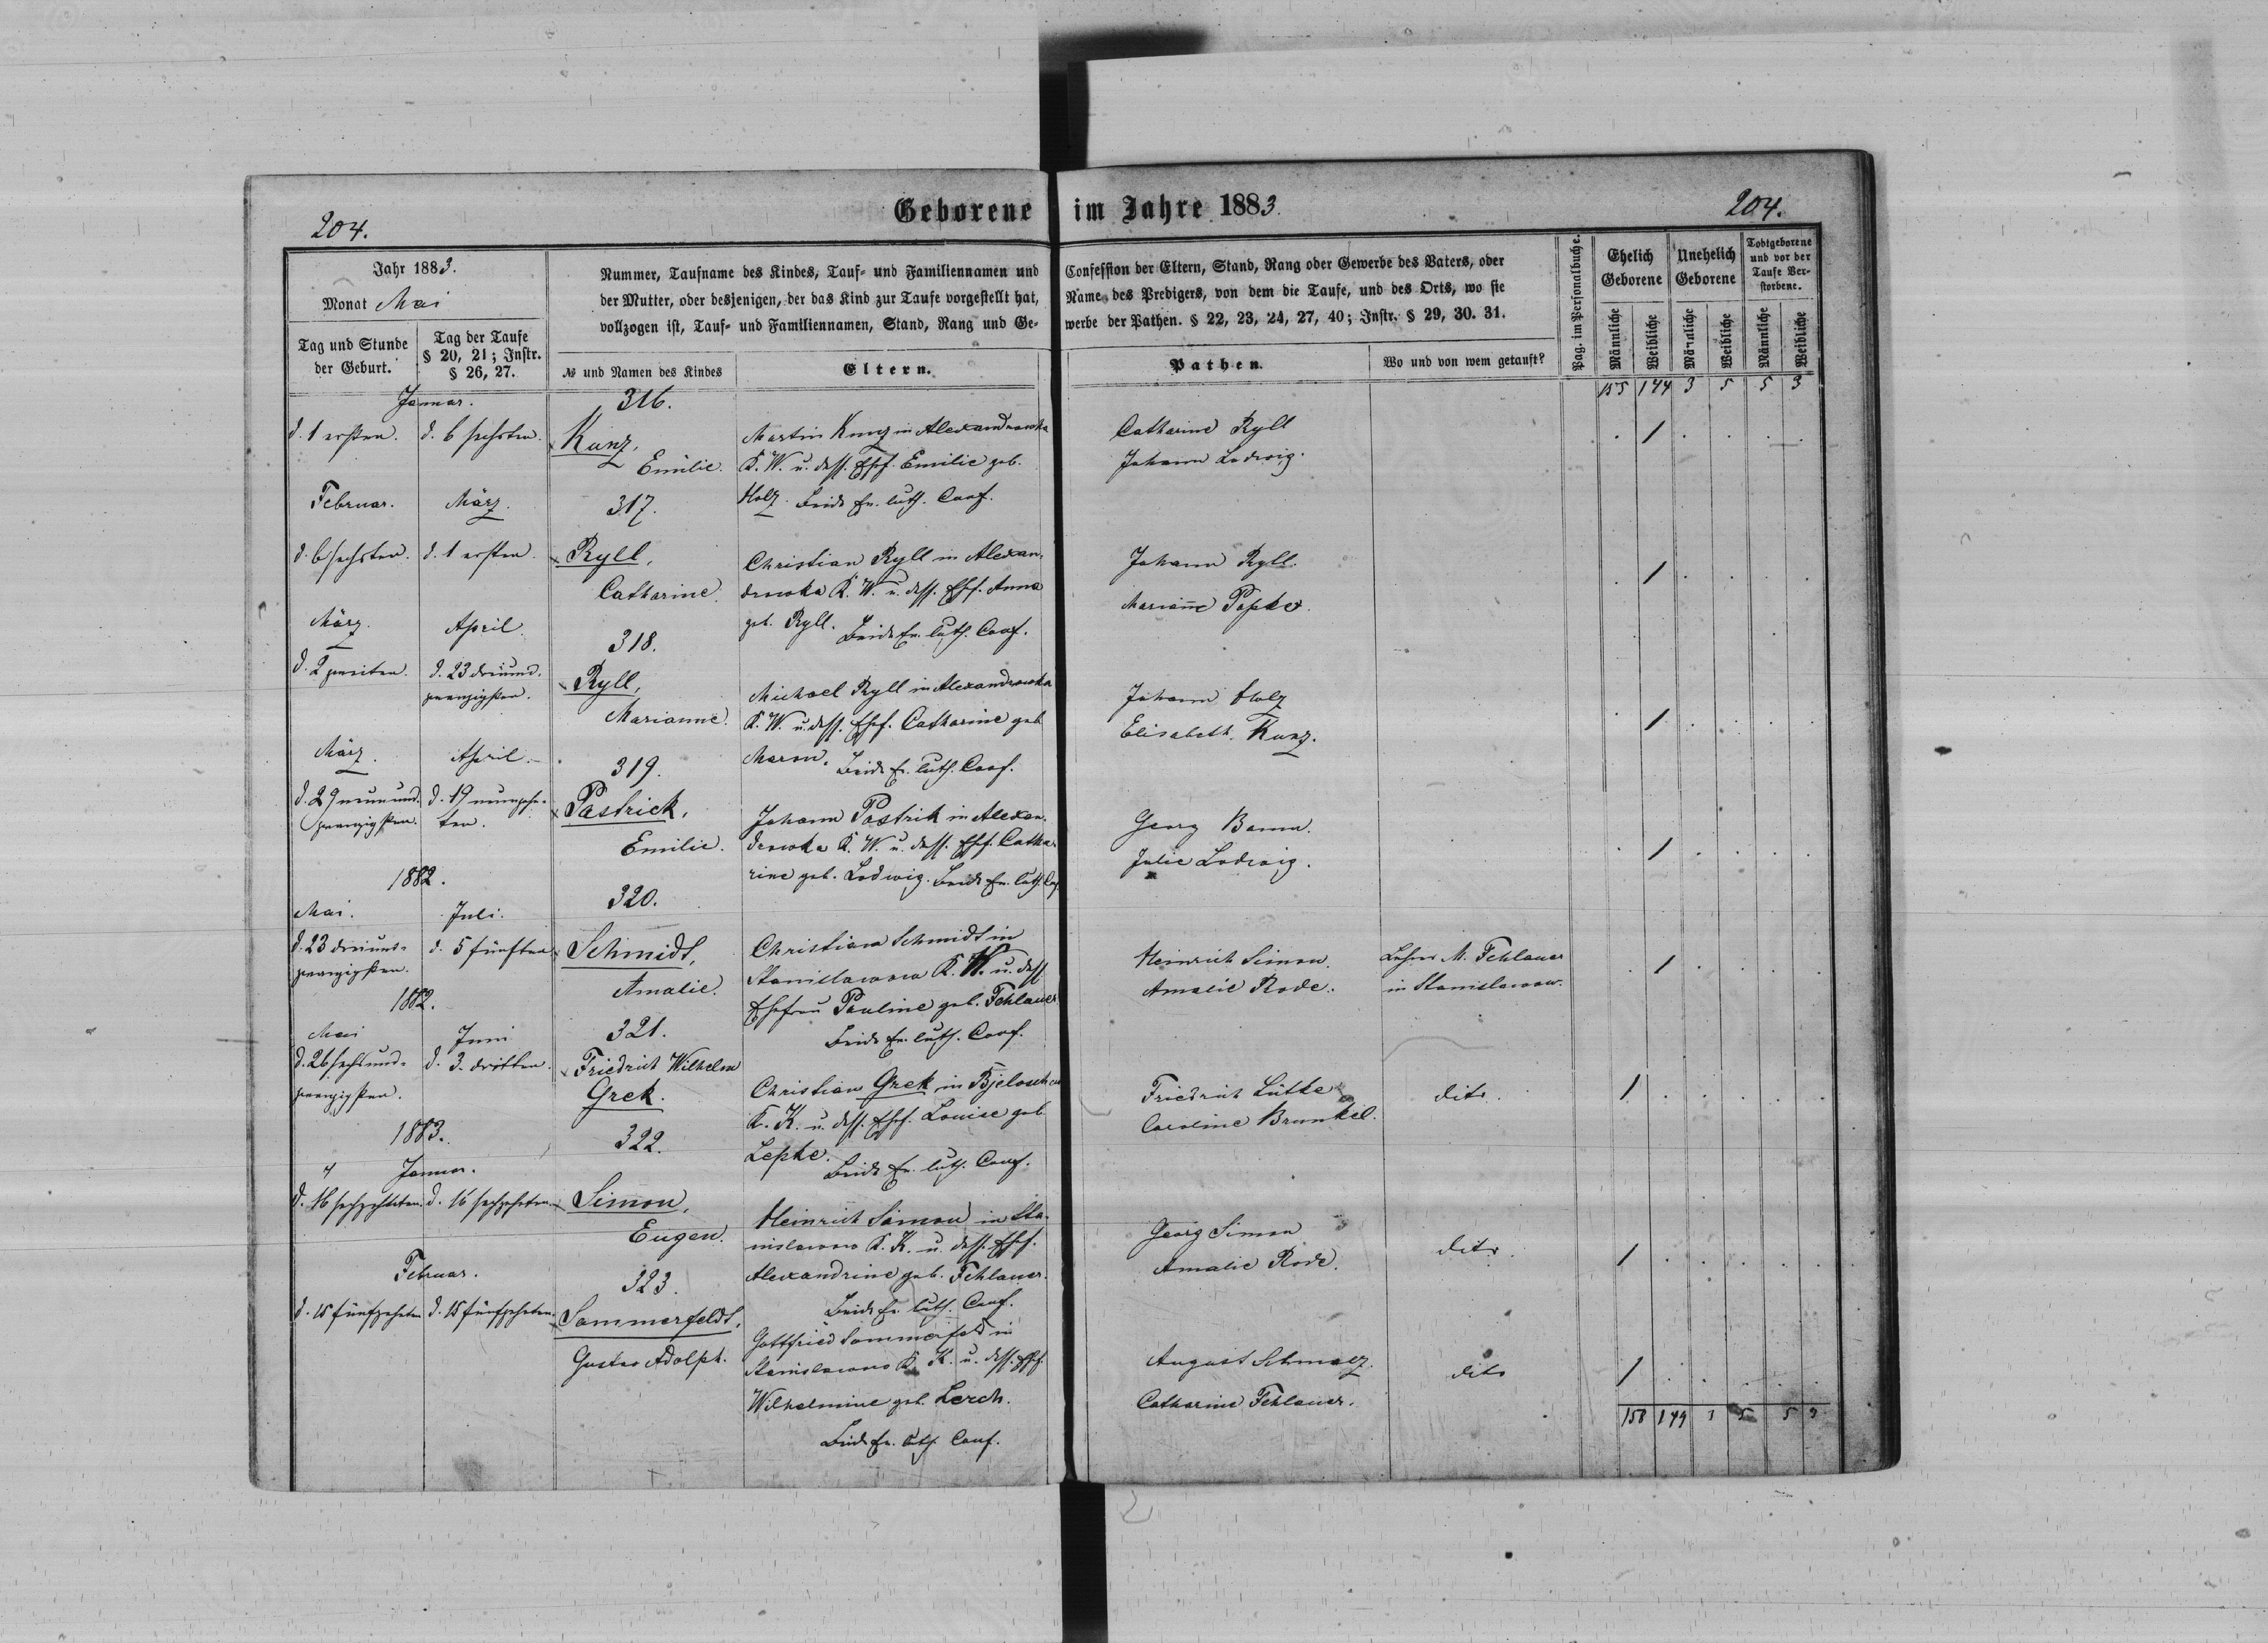 204.
Geborene im Jahre 1883.
204.
Jahr 1883.
Monat Mai
Tag und Stunde der Geburt.
Tag der Taufe § 20, 21; Instr. § 26, 27.
Nummer, Taufname des Kindes, Tauf- und Familiennamen und
der Mutter, oder desjenigen, der das Kind zur Taufe vorgestellt hat,
vollzogen ist, Tauf- und Familiennamen, Stand, Rang und Ge-
№ und Namen des Kindes
Eltern.
Confession der Eltern, Stand, Rang oder Gewerbe des Vaters, oder
Name des Predigers, von dem die Taufe, und des Orts, wo sie
werbe der Pathen. § 22, 23, 24, 27, 40; Instr. § 29, 30. 31.
Pathen.
Wo und von wem getauft?
Pag. im Personalbuche.
Ehelich Geborene
Unehelich Geborene
Todtgeborene und vor der Taufe Verstorbene.
Männliche
Weibliche
Männliche
Weibliche
Männliche
Weibliche
155 144 3 5 5 3
Januar.
316.
d. 1 ersten. d. 6 sechsten.
Kunz,
Emilie.
Martin Kunz in Alexandrowka
K. W. u. dess. Ehef. Emilie geb.
Holz. Beide Ev. luth. Conf.
Catharine Ryll
Johann Lodwig.
1
Februar. März.
317.
d. 6 sechsten. d. 1 ersten.
Ryll,
Catharine.
Christian Ryll in Alexan-
drowka K. W. u. dess. Ehef. Anna
geb. Ryll. Beide Ev. luth. Conf.
Johann Ryll.
Marianne Papke.
1
März. April.
318.
d. 2 zweiten. d. 23 dreiund-
zwanzigsten.
Ryll,
Marianne.
Michael Ryll in Alexandrowka
K. W. u. dess. Ehef. Catharine geb.
Maron. Beide Ev. luth. Conf.
Johann Holz
Elisabeth Kunz.
1
März. April.
319.
d. 29 neunund- d. 19 neunzehn-
zwanzigsten. ten.
Pastrick,
Emilie.
Johann Pastrik in Alexan-
drowka K. W. u. dess. Ehef. Catha-
rine geb. Lodwig. Beide Ev. luth. Conf.
Georg
Julie Lodwig.
1
1882.
Mai. Juli.
320.
d. 23 dreiund- d. 5 fünften
zwanzigsten.
Schmidt,
Amalie.
Christian Schmidt in
Stanislawow K. W. u. dess.
Ehefrau Pauline geb. Fehlauer
Beide Ev. luth. Conf.
Heinrich Simon.
Amalie Rode.
Lehrer M. Fehlauer
in Stanislawow.
1
1882.
Mai Juni
321.
d. 26 sechsund- d. 3. dritten.
zwanzigsten.
Friedrich Wilhelm
Grek.
Christian Grek in
K. K. u. dess. Ehef. Louise geb.
Lepke. Beide Ev. luth. Conf.
Friedrich Lütke
Caroline Brunkel.
dito.
1
1883.
Januar.
322.
d. 16 sechzehnten. d. 16 sechzehnten.
Simon,
Eugen.
Heinrich Simon in Sta-
nislawow K. K. u. dess. Ehef.
Alexandrine geb. Fehlauer.
Beide Ev. luth. Conf.
Georg Simon
Amalie Rode.
dito.
1
Februar.
323.
d. 15 fünfzehnten d. 15 fünfzehnten.
Sommerfeldt,
Gustav Adolph.
Gottfried Sommerfeld in
Stanislawow K. K. u. dess. Ehef.
Wilhelmine geb. Lerch.
Beide Ev. luth. Conf.
August Schmalz.
Catharine Fehlauer.
dito
1
158 149 3 5 5 3